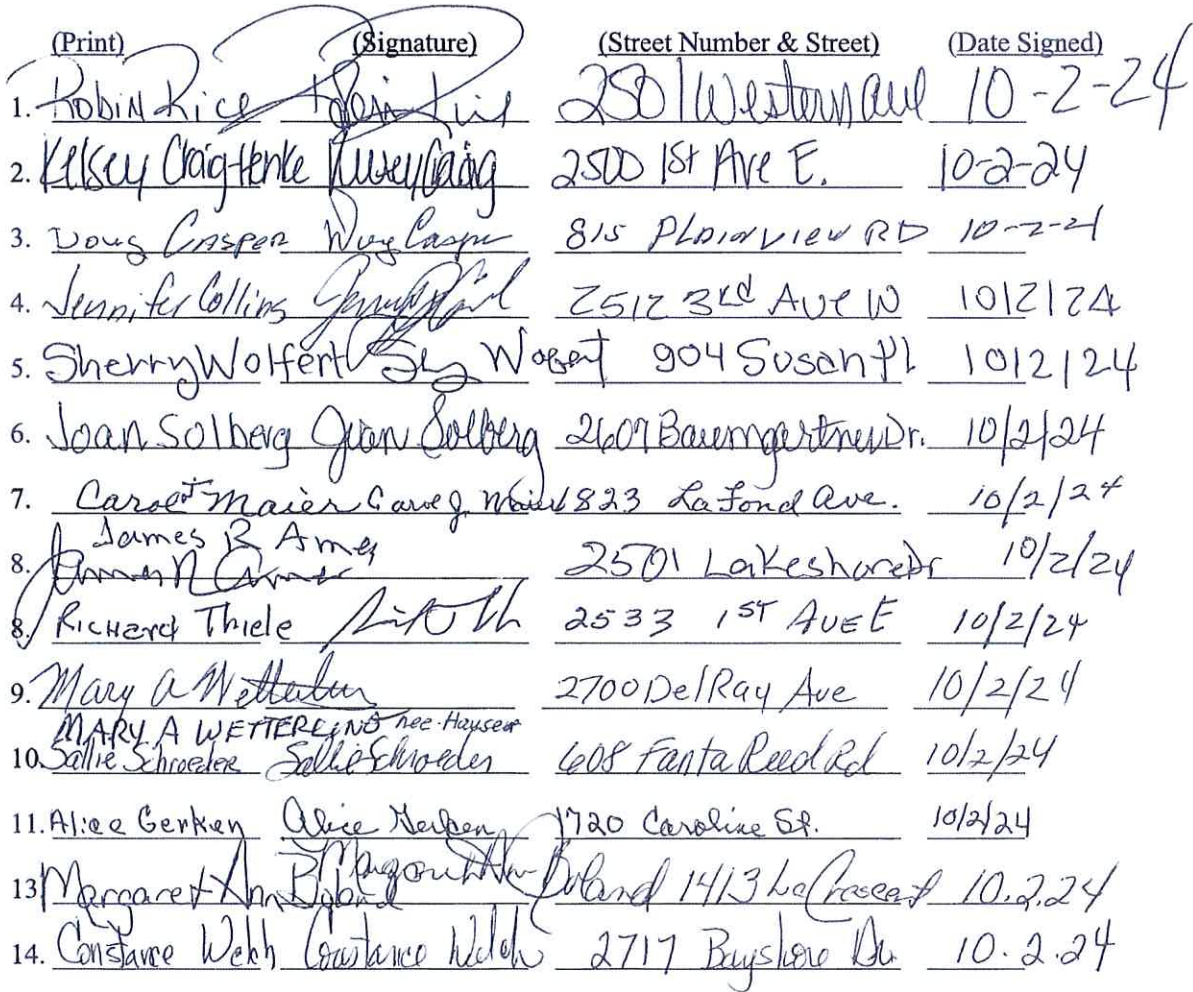 (Print) (Signature) (Street Number & Street) (Date Signed)
1. Robin Rice Robin Rice 2501 Western Ave 10-2-24
2. Kelsey Craig-Henke Kelsey Craig 2500 1st Ave E. 10-2-24
3. Doug CASPER Doug Casper 815 PLAINVIEW RD 10-2-24
4. Jennifer Collins 2512 3rd Ave W 10/2/24
5. Sherry Wolfert 904 Susan Pl 10/2/24
6. Joan Solberg Joan Solberg 2607 Baumgartner Dr. 10/2/24
7. Carol J Maier Carol J. Maier 1823 LaFond Ave. 10/2/24
James R Ames
8. James R Ames 2501 Lakeshore Dr 10/2/24
8. Richard Thiele 2533 1ST AVE E 10/2/24
9. Mary A Wetterling 2700 Del Ray Ave 10/2/24
MARY A WETTERLING nee Hauser
10. Sallie Schroeder Sallie Schroeder 608 Fanta Reed Rd 10/2/24
11. Alice Gerken Alice Gerken 1720 Caroline St. 10/2/24
13 Margaret Ann Boland Margaret Ann Boland 1413 LaCrescent 10.2.24
14. Constance Welch Constance Welch 2717 Bayshore Dr. 10.2.24